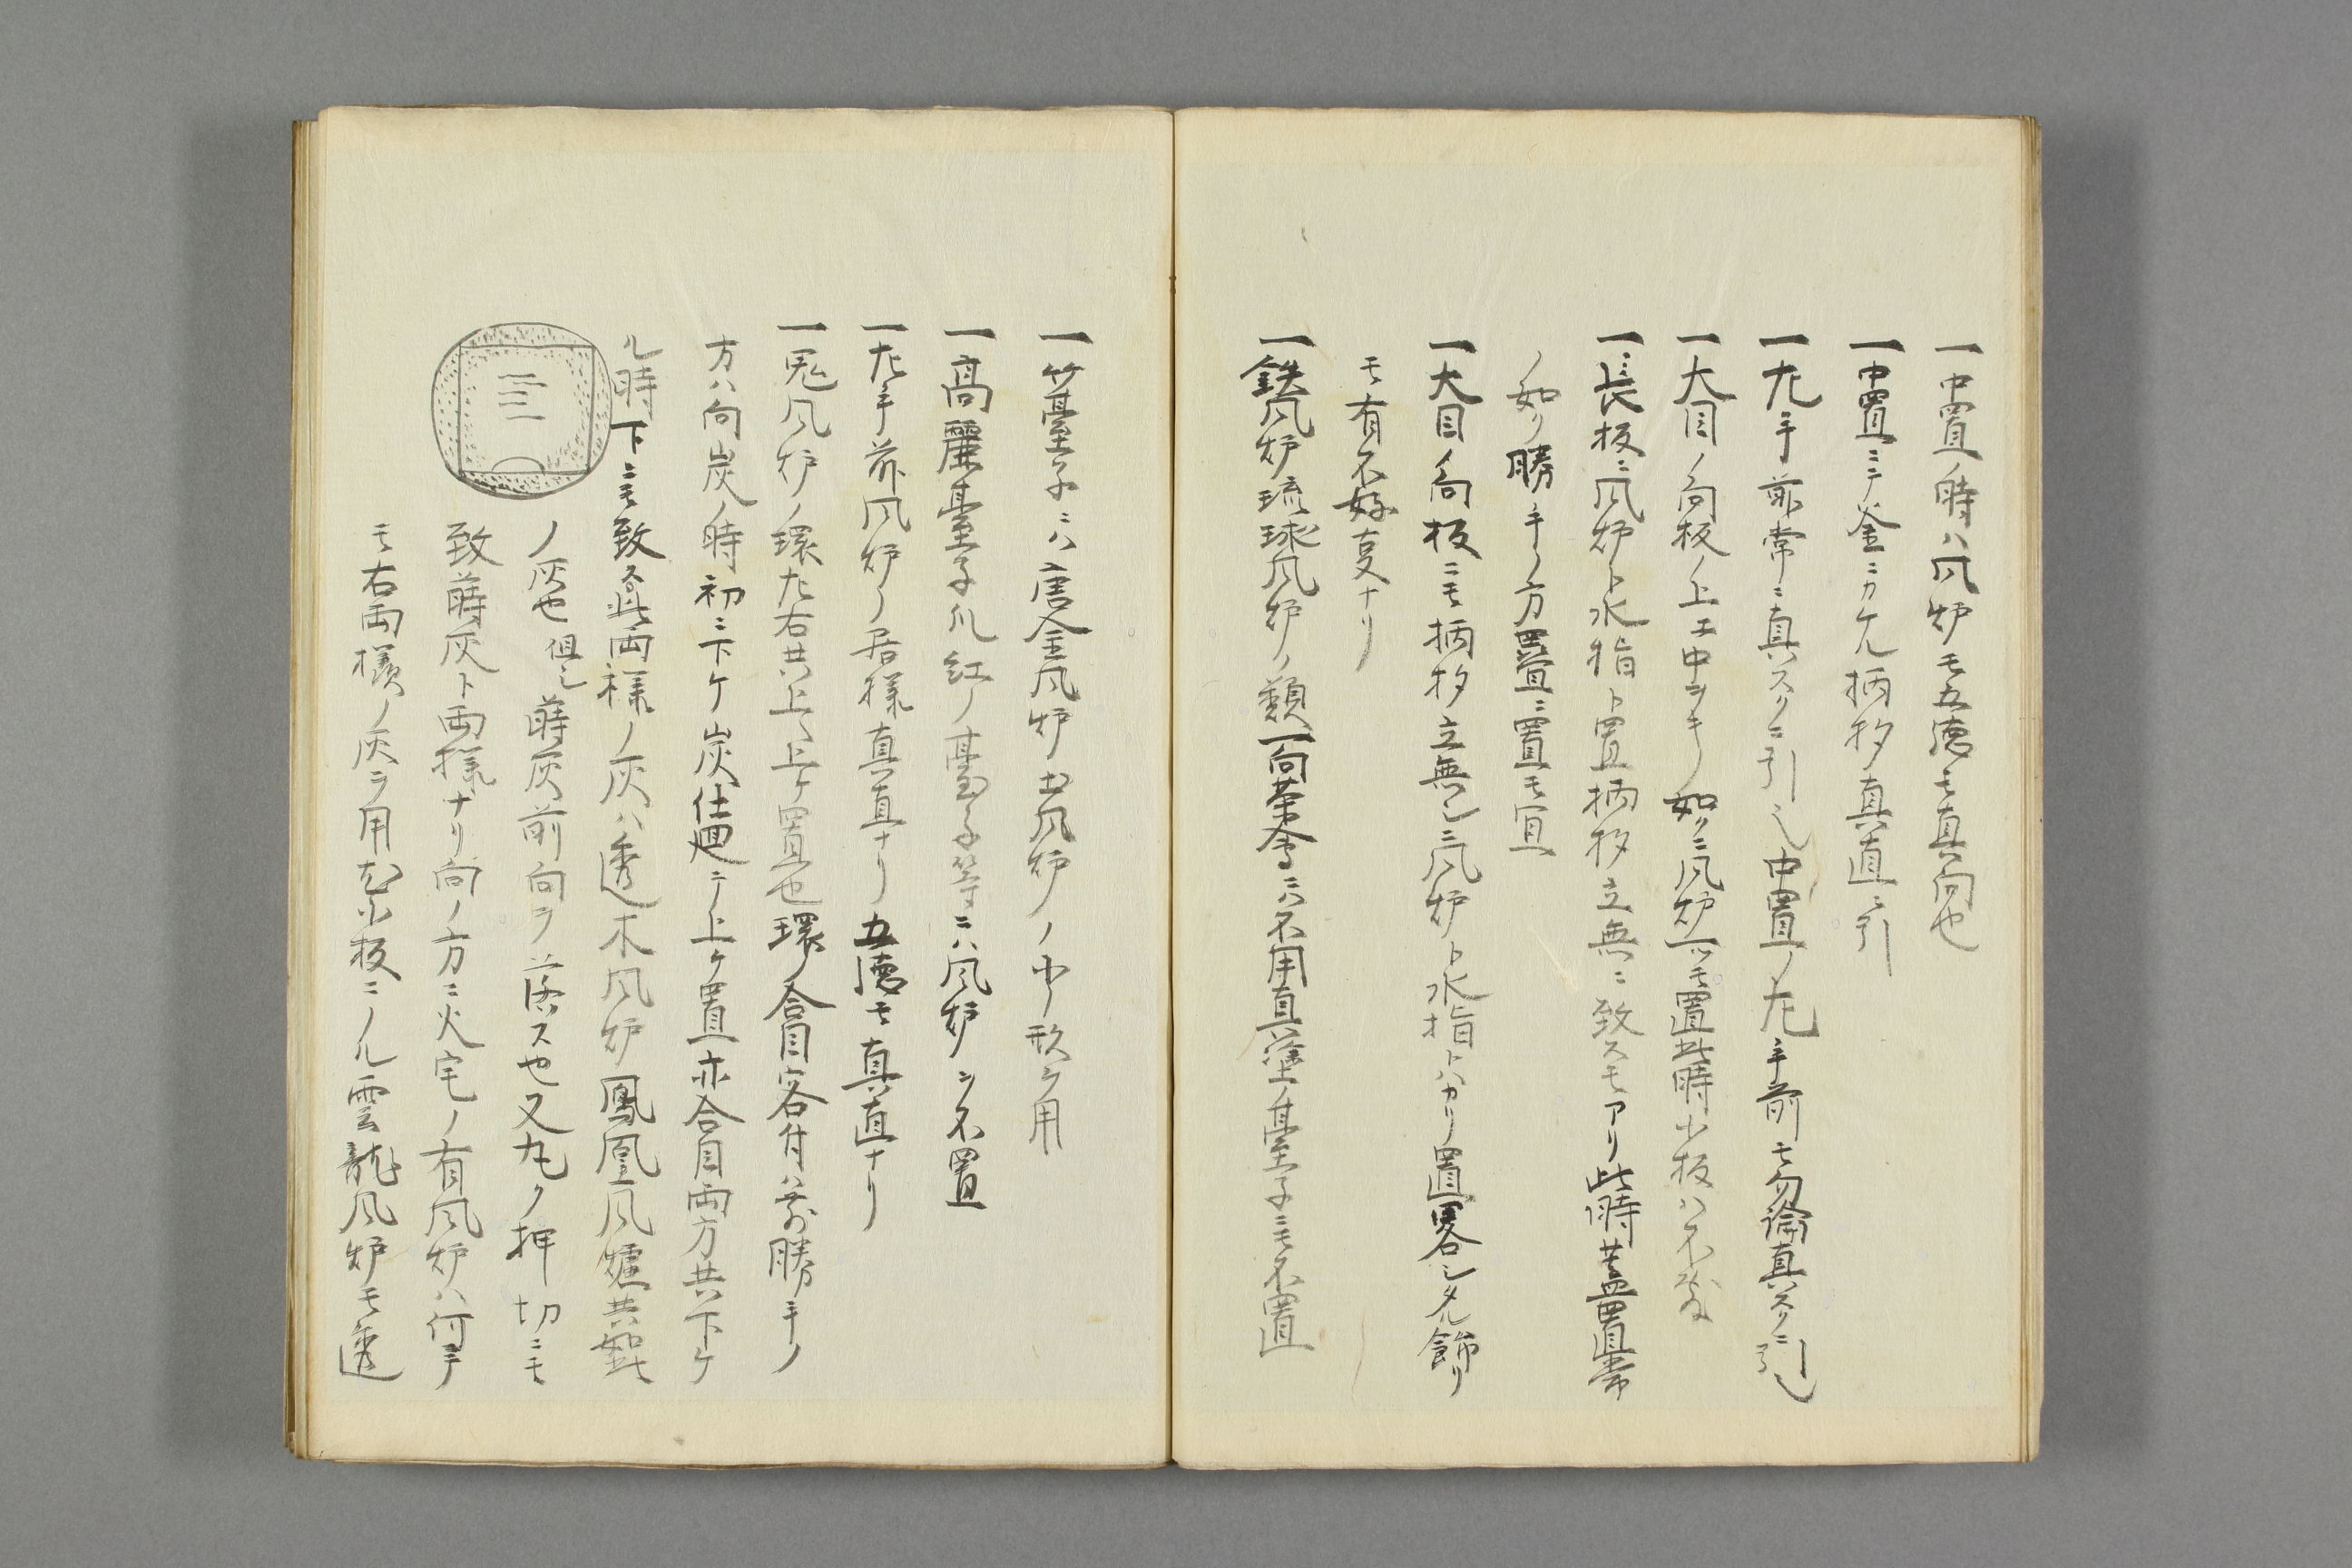 一中置ノ時ハ風炉モ五徳モ真向也
一中置ニテ釜ニカケル柄杓真直ニ引
一左手前常ニ真スクニ引之中置ノ左手前モ勿論真スクニ引之
一大目ノ向板ノ上エ中ヲキノ如クニ風炉一ツモ置此時小板ハ不敷
一長板ニ風炉ト水指ト置柄杓立無ニ致スモアリ此時蓋置常
ノ如ク勝手ノ方置ニ置モ宜
一大目ノ向板ニモ柄杓立無シニ風炉ト水指トハカリ置畧シタル飾リ
モ有不好支ナリ
一鉄風炉琉球風炉ノ類一向茶會ニハ不用真塗ノ臺子ニモ不置
一竹臺子ニハ唐金風炉土風炉ノ小形ヲ用
一高麗臺子爪紅ノ臺子等ニハ風炉ヲ不置
一左手前風炉ノ居様真直ナリ五徳モ真直ナリ
一鬼風炉ノ環左右共上ヘ上ケ置也環ノ合目客付ハ前勝手ノ
方ハ向炭ノ時初ニ下ケ炭仕廻テ上ケ置亦合目両方共下ケ
ル時下ニモ致ス此両様ノ灰ハ透木風炉鳳凰風爐共如此
ノ灰也但シ蒔灰前向ヲ落ス也又丸ク押切ニモ
致蒔灰ト両様ナリ向ノ方ニ火宅ノ有風炉ハ何ニテ
モ右両様ノ灰ヲ用尤小板ニノル雲龍風炉モ透